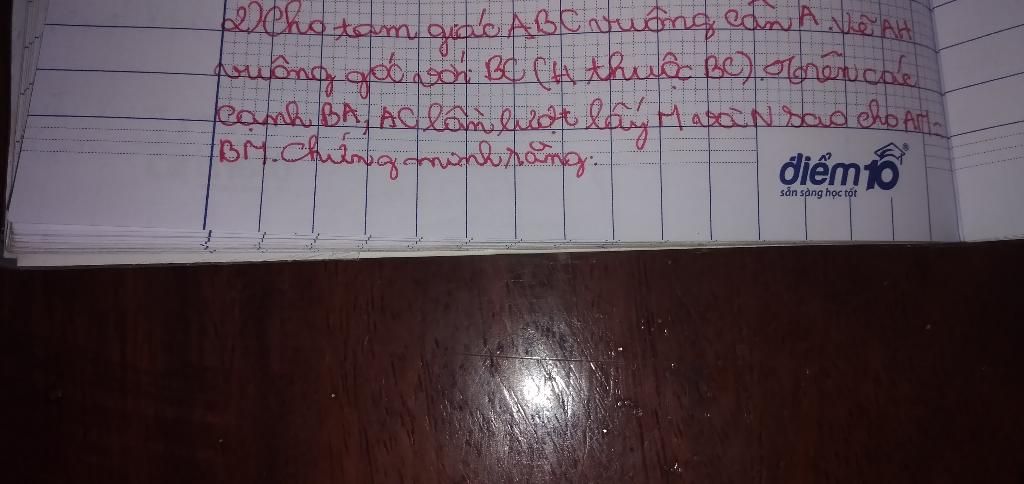 2) Cho tam giác ABC vuông cân A. Vẽ AH
vuông góc với BC (H thuộc BC). Trên các
cạnh BA, AC lần lượt lấy M và N sao cho AM=
BM. Chứng minh rằng:
điểm10
sẵn sàng học tốt